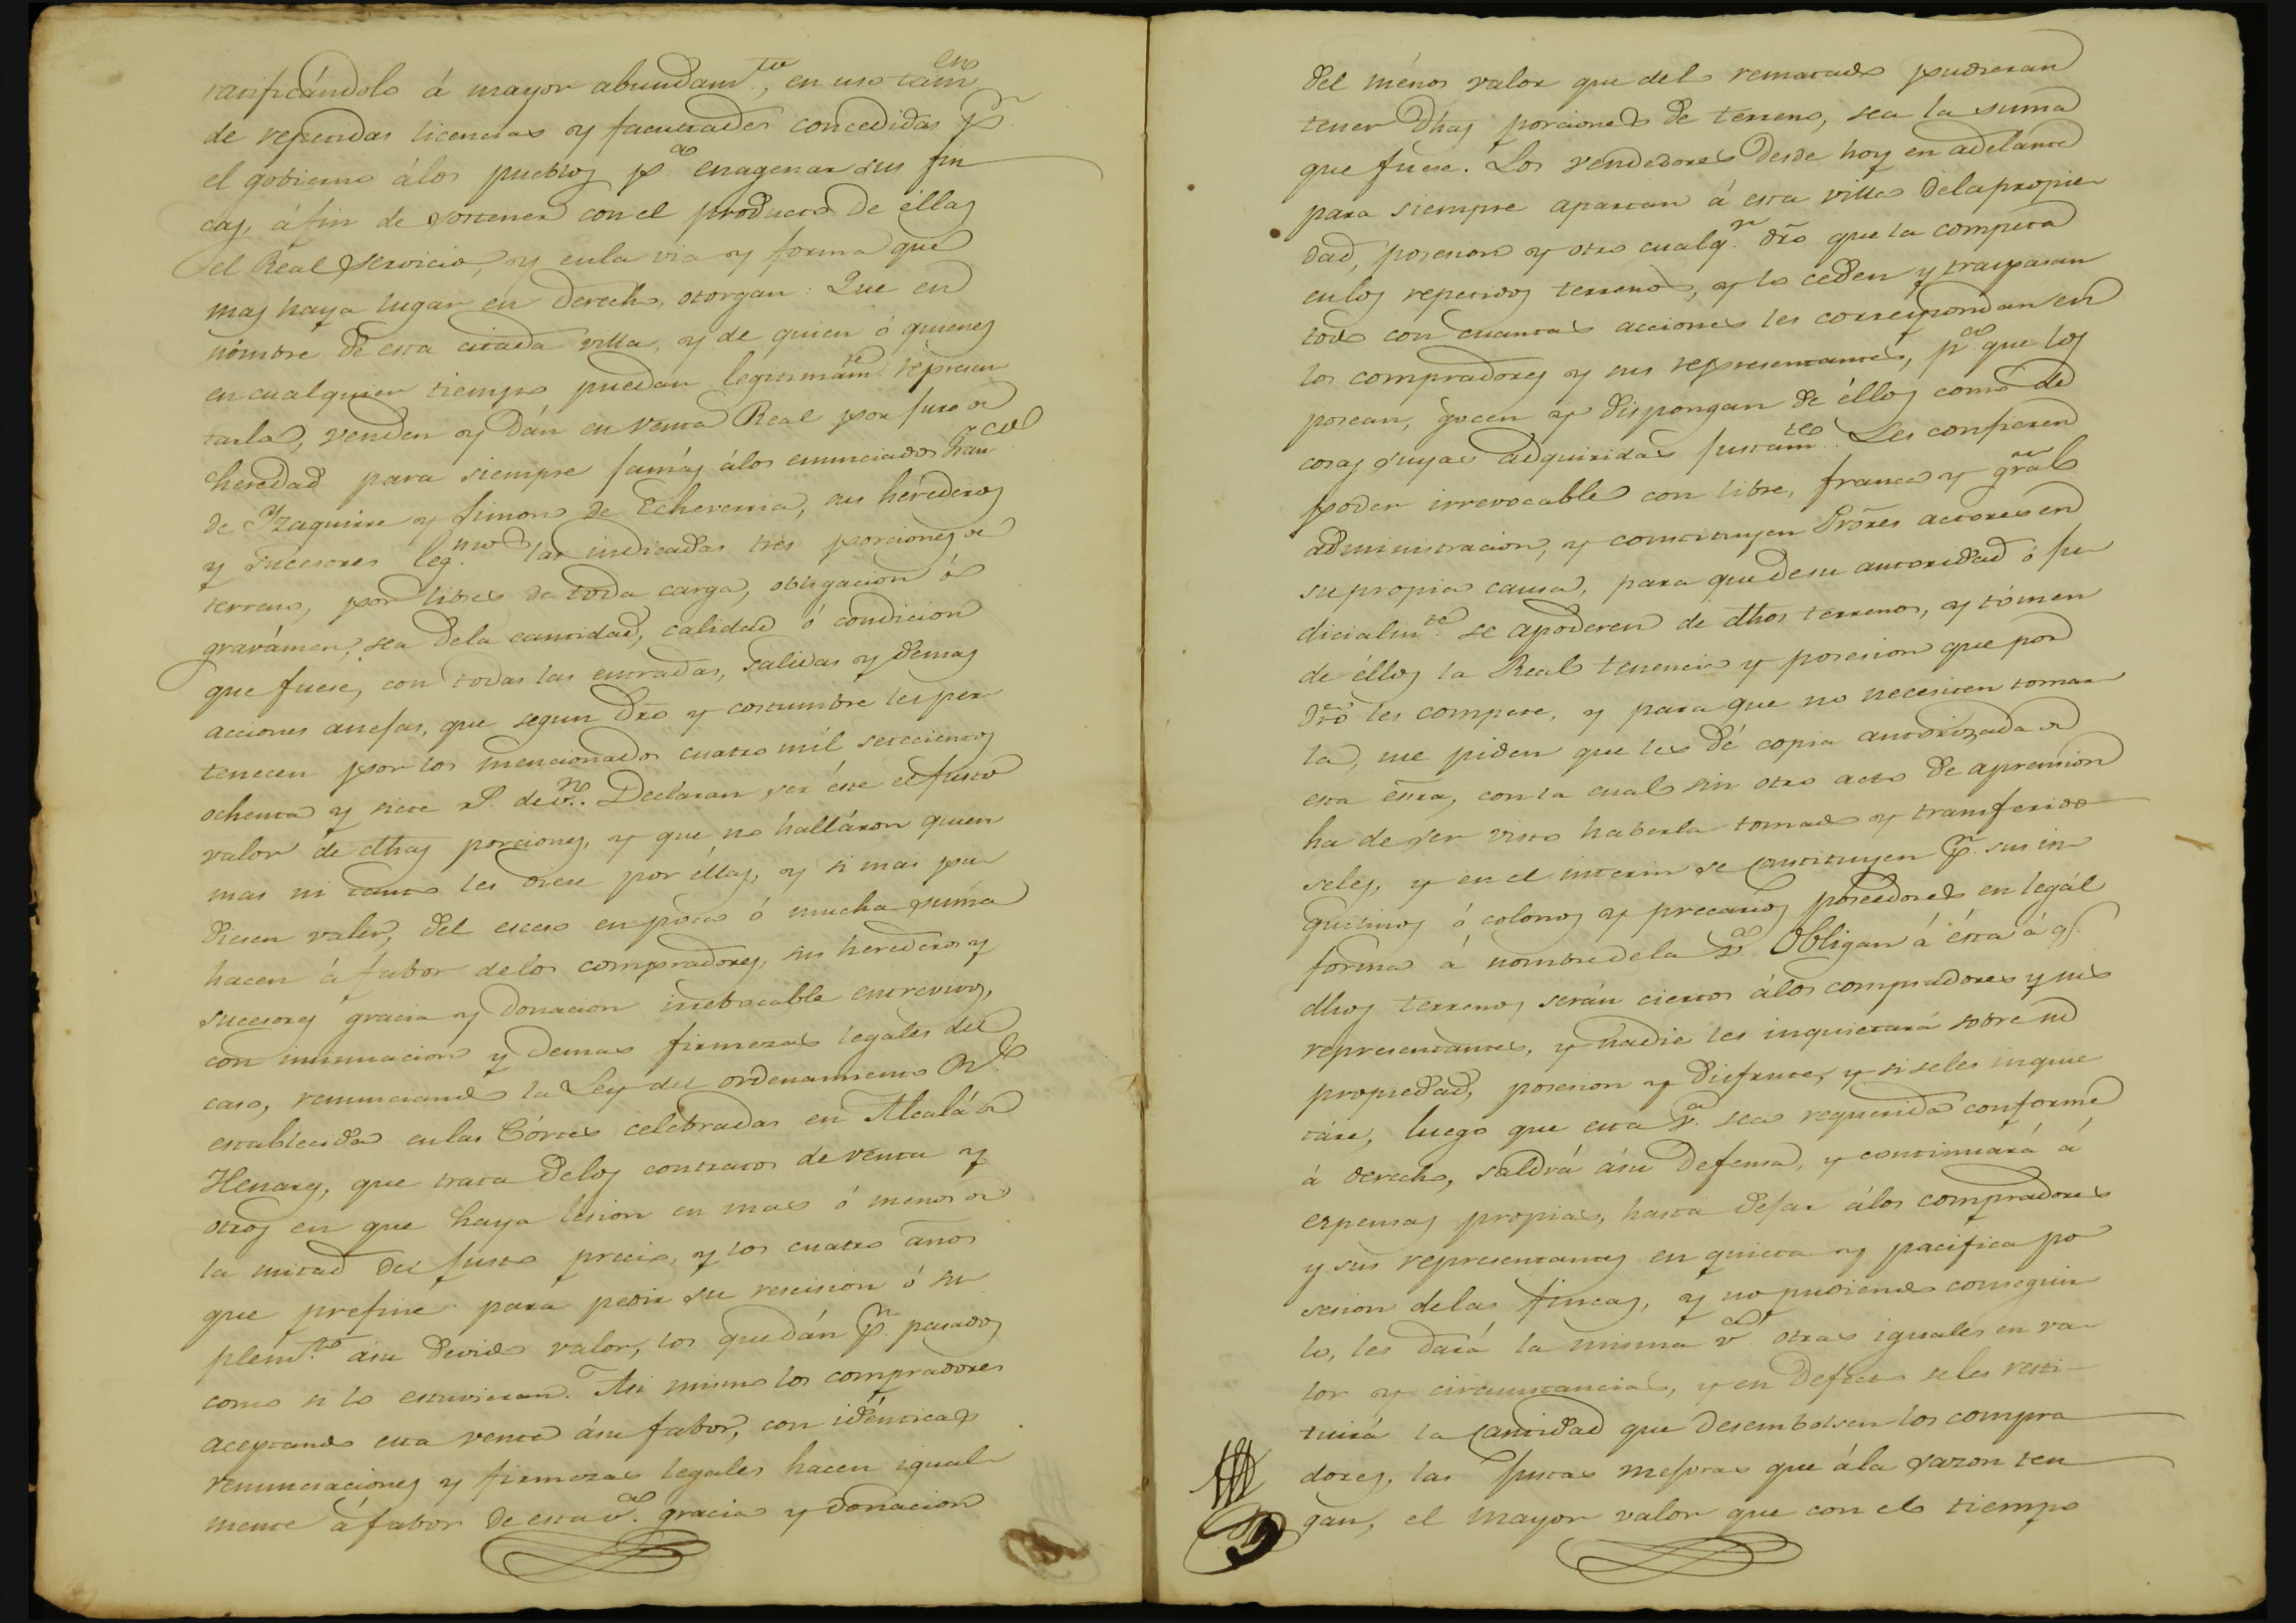 ratificándolo á mayor abundamᵗᵒ, en uso tambⁿ
de referidas licencias y facultades concedidas pʳ
el gobierno álos pueblos pᵃ enagenar sus fin
cas, á fin de sostener con el producto de éllas
el Real servicio, y enla via y forma que
mas haya lugar en derecho, otorgan: Que en
nómbre de esta citada villa, y de quien ó quienes
en cualquier tiempo puedan legitimamᵗᵉ represen
tarla, venden y dán en venta Real por juro de
heredad para siempre jamás álos enunciados Franᶜᵒ
de Yzaguirre y Simon de Echeverria, sus hérederos
y sucesores legᵐᵒˢ las indicadas tres porciones de
terreno, por libres de toda carga, obligacion ó
gravámen, sea dela cantidad, calidad ó condicion
que fuese, con todas las entradas, salidas y demas
acciones anejas, que segun dro y costumbre les per
tenecen por los mencionados cuatro mil setecientos
ochenta y siete rˢ. de vⁿ. Declaran, ser éste el justo
valor de dhas porciones, y que no halláron quien
mas ni tanto les diese por éllas, y si mas pu
diesen valer, del esceso en poca ó mucha suma
hacen á fabor delos compradores, sus herederos y
sucesores gracia y donacion irrebocable entrevivos,
con insinuacion y demas firmezas legales del
caso, renunciando la Ley del ordenamiento Rˡ
establecida enlas Córtes celebradas en Alcalá de
Henares, que trata delos contratos de venta y
otros en que haya lesion en mas ó menos de
la mitad del justo precio, y los cuatro años
que prefine para pedir su rescision ó su
plemᵗᵒ ásu devido valor, los que dán pʳ pasados
como si lo estuvieran. Asi mismo los compradores
aceptando esta venta ásu fabor, con idénticas
renunciaciones y firmezas legales hacen igual
mente á fabor de esta vᵃ. gracia y donacion
del ménos valor que del rematado pudieran
tener dhas porciones de terreno, sea la suma
que fuese. Los vendedores desde hoy en adelante
para siempre apartan á esta villa delapropie
dad, posesion y otro cualqʳ dro que la competa
enlos repetidos terrenos, y lo ceden y traspasan
todo con cuantas acciones les correspondan en
los compradores y sus representantes, pᵃ que los
posean, gocen y dispongan de éllos como de
cosas suyas adquiridas justamᵗᵉ. Les confieren
poder irrevocable con libre, franca y gral
administracion, y constituyen Prores actores en
su propia causa, para que desu autoridad ó ju
dicialmᵗᵉ se apoderen de dhos terrenos, y tómen
de éllos la Real tenencia y posesion que por
dro les compete, y para que no necesiten tomar
la, me piden que les dé copia autorizada de
esta esra, conla cual sin otro acto de aprension
ha de ser visto haberla tomado y transferido
seles, y en el interin se constituyen pʳ sus in
quilinos ó colonos y precarios poseedores en legál
forma á nombre dela vᵃ. Obligan á ésta á qᵉ
dhos terrenos serán ciertos álos compradores y sus
representantes, y nadie les inquietará sobre su
propiedad, posesion y disfrute, y siseles inquie
táre, luego que esta vᵃ. sea requerida conforme
á derecho, saldrá ásu defensa, y continuará á
espensas propias, hasta dejar álos compradores
y sus representantes en quieta y pacifica po
sesion delas fincas, y no pudiendo conseguir
lo, les dará la misma vᵃ otras iguales en va
lor y circunstancias, y en defecto seles resti
tuirá la cantidad que desembolsen los compra
dores, las justas mejoras que ála sazon ten
gan, el mayor valor que con el tiempo